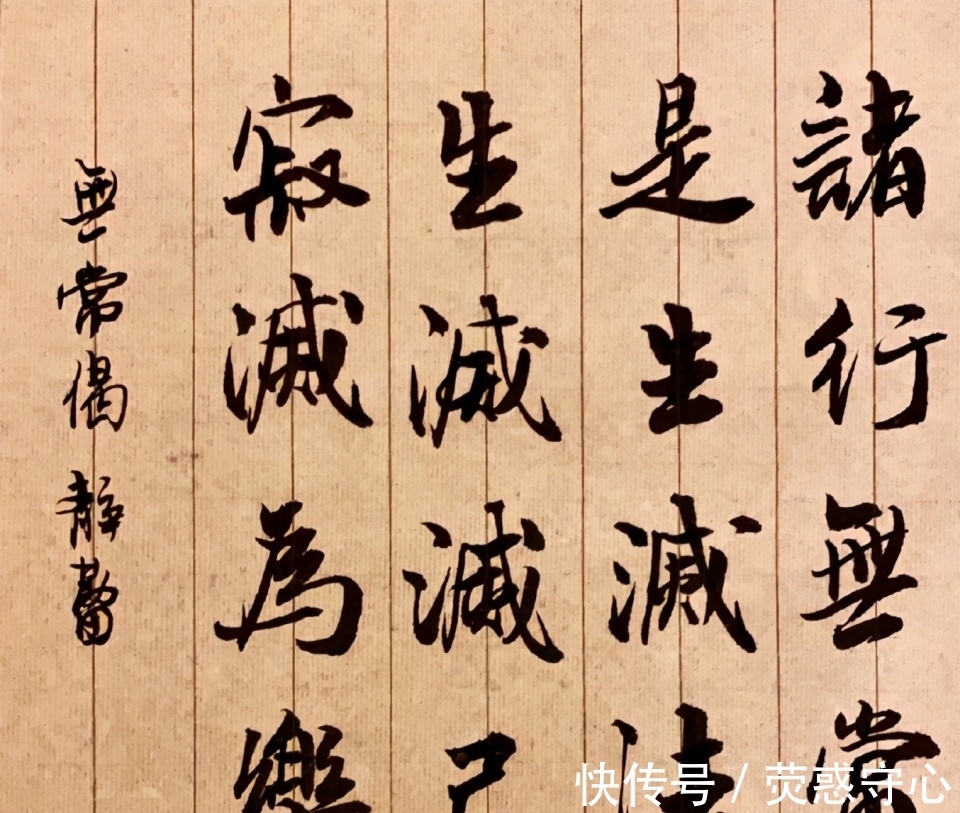 諸行無常
是生滅法
生滅滅已
寂滅為樂
無常偈 靜蕾
快传号 / 荧惑守心